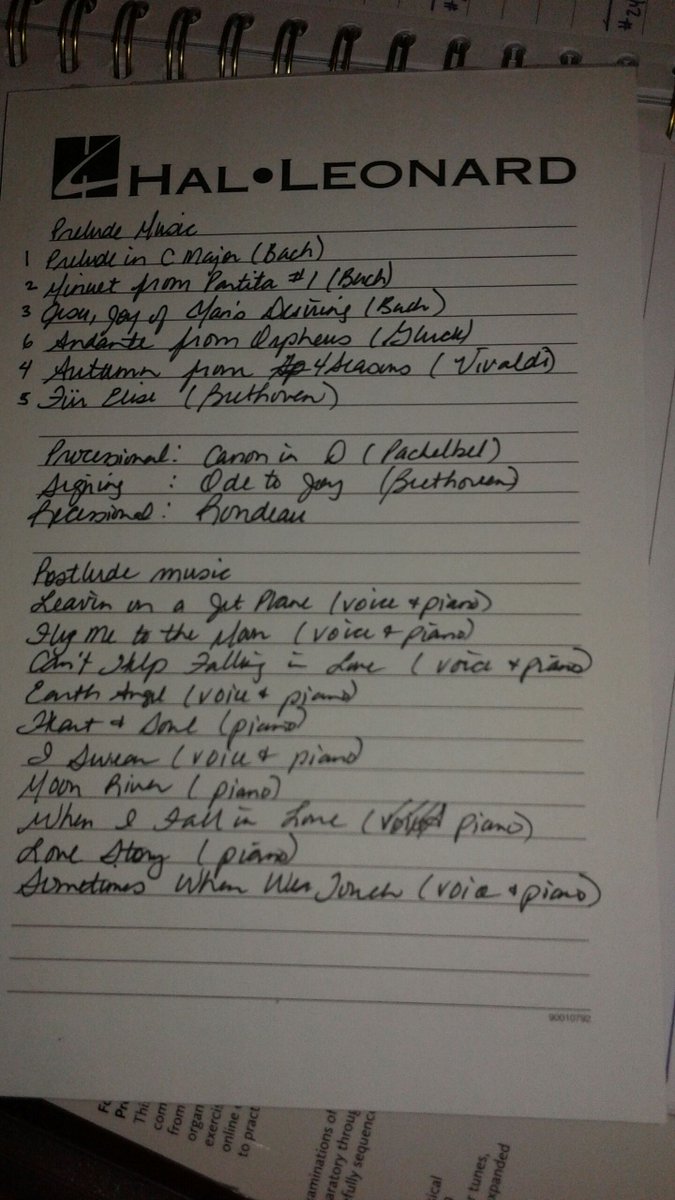 #
#24
HAL•LEONARD
Prelude Music
1 Prelude in C Major (Bach)
2 Minuet from Partita #1 (Bach)
3 Jesu, Joy of Man's Desiring (Bach)
6 Andante from Orpheus (Gluck)
4 Autumn from 4 Seasons (Vivaldi)
5 Für Elise (Beethoven)
Processional: Canon in D (Pachelbel)
Signing : Ode to Joy (Beethoven)
Recessional: Rondeau
Postlude music
Leavin on a Jet Plane (voice & piano)
Fly Me to the Moon (voice & piano)
Can't Help Falling in Love (voice & piano)
Earth Angel (voice & piano)
Heart & Soul (piano)
I Swear (voice & piano)
Moon River (piano)
When I Fall in Love (piano)
Love Story (piano)
Sometimes When We Touch (voice & piano)
90010792
This
com
from
organ
exercis
online
to pract
aminations of
aratory throug
fully sequenc
ical
tunes,
xpanded